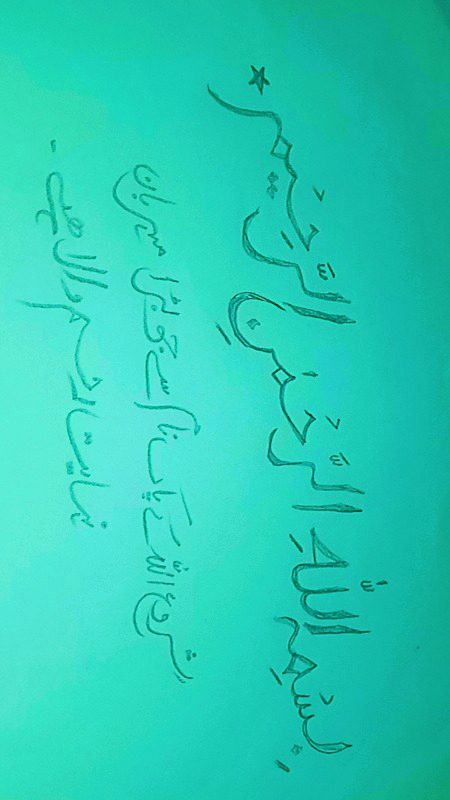 بِسْمِ اللّٰهِ الرَّحْمٰنِ الرَّحِيْمِ
شروع اللّٰہ کے پاک نام سے جو بڑا مہربان
نہایت رحم والا ھے۔